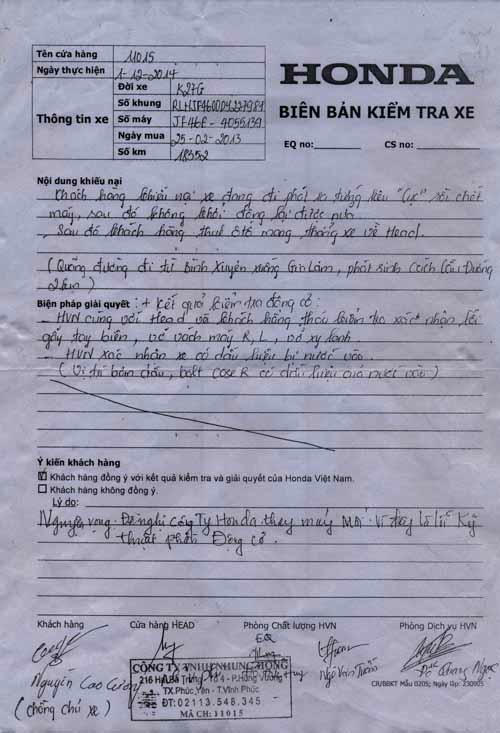 Tên cửa hàng 11015
Ngày thực hiện 1-12-2014
HONDA
Thông tin xe
Đời xe K27G
Số khung
Số máy JF46E - 4055139
Ngày mua 25-02-2013
Số km 18352
BIÊN BẢN KIỂM TRA XE
EQ no: CS no:
Nội dung khiếu nại
Khách hàng khiếu nại xe đang đi phát ra tiếng kêu "Cực" rồi chết
máy, sau đó không khởi động lại được nữa
Sau đó khách hàng thuê ôtô mang thẳng xe về Head.
(Quãng đường đi từ Bình Xuyên xuống Gia Lâm, phát sinh cách Cầu Đuống
2km)
Biện pháp giải quyết: + Kết quả kiểm tra động cơ:
- HVN cùng với Head và khách hàng tháo kiểm tra xác nhận lỗi
gãy tay biên, vỡ vách máy R, L, vỡ xy lanh.
- HVN xác nhận xe có dấu hiệu bị nước vào.
(Vị trí bàn chải, bolt case R có dấu hiệu của nước vào)
Ý kiến khách hàng
Khách hàng đồng ý với kết quả kiểm tra và giải quyết của Honda Việt Nam.
Khách hàng không đồng ý.
Lý do:
Nguyện vọng. Đề nghị Công Ty Honda thay máy mới. Vì đây là lỗi Kỹ
thuật phần Động cơ.
Khách hàng Cửa hàng HEAD Phòng Chất lượng HVN Phòng Dịch vụ HVN
EQ
Nguyễn Cao Cường
(chồng chủ xe)
CÔNG TY TNHH NHUNG HỒNG
216 Hai Bà Trưng - P. Hùng Vương
TX.Phúc Yên - T.Vĩnh Phúc
ĐT: 02113.548.345
MÃ CH: 11015
Huy
Ngô Văn Tuấn
Quang Ngọc
CR/BBKT Mẫu 0205; Ngày lập: 230905